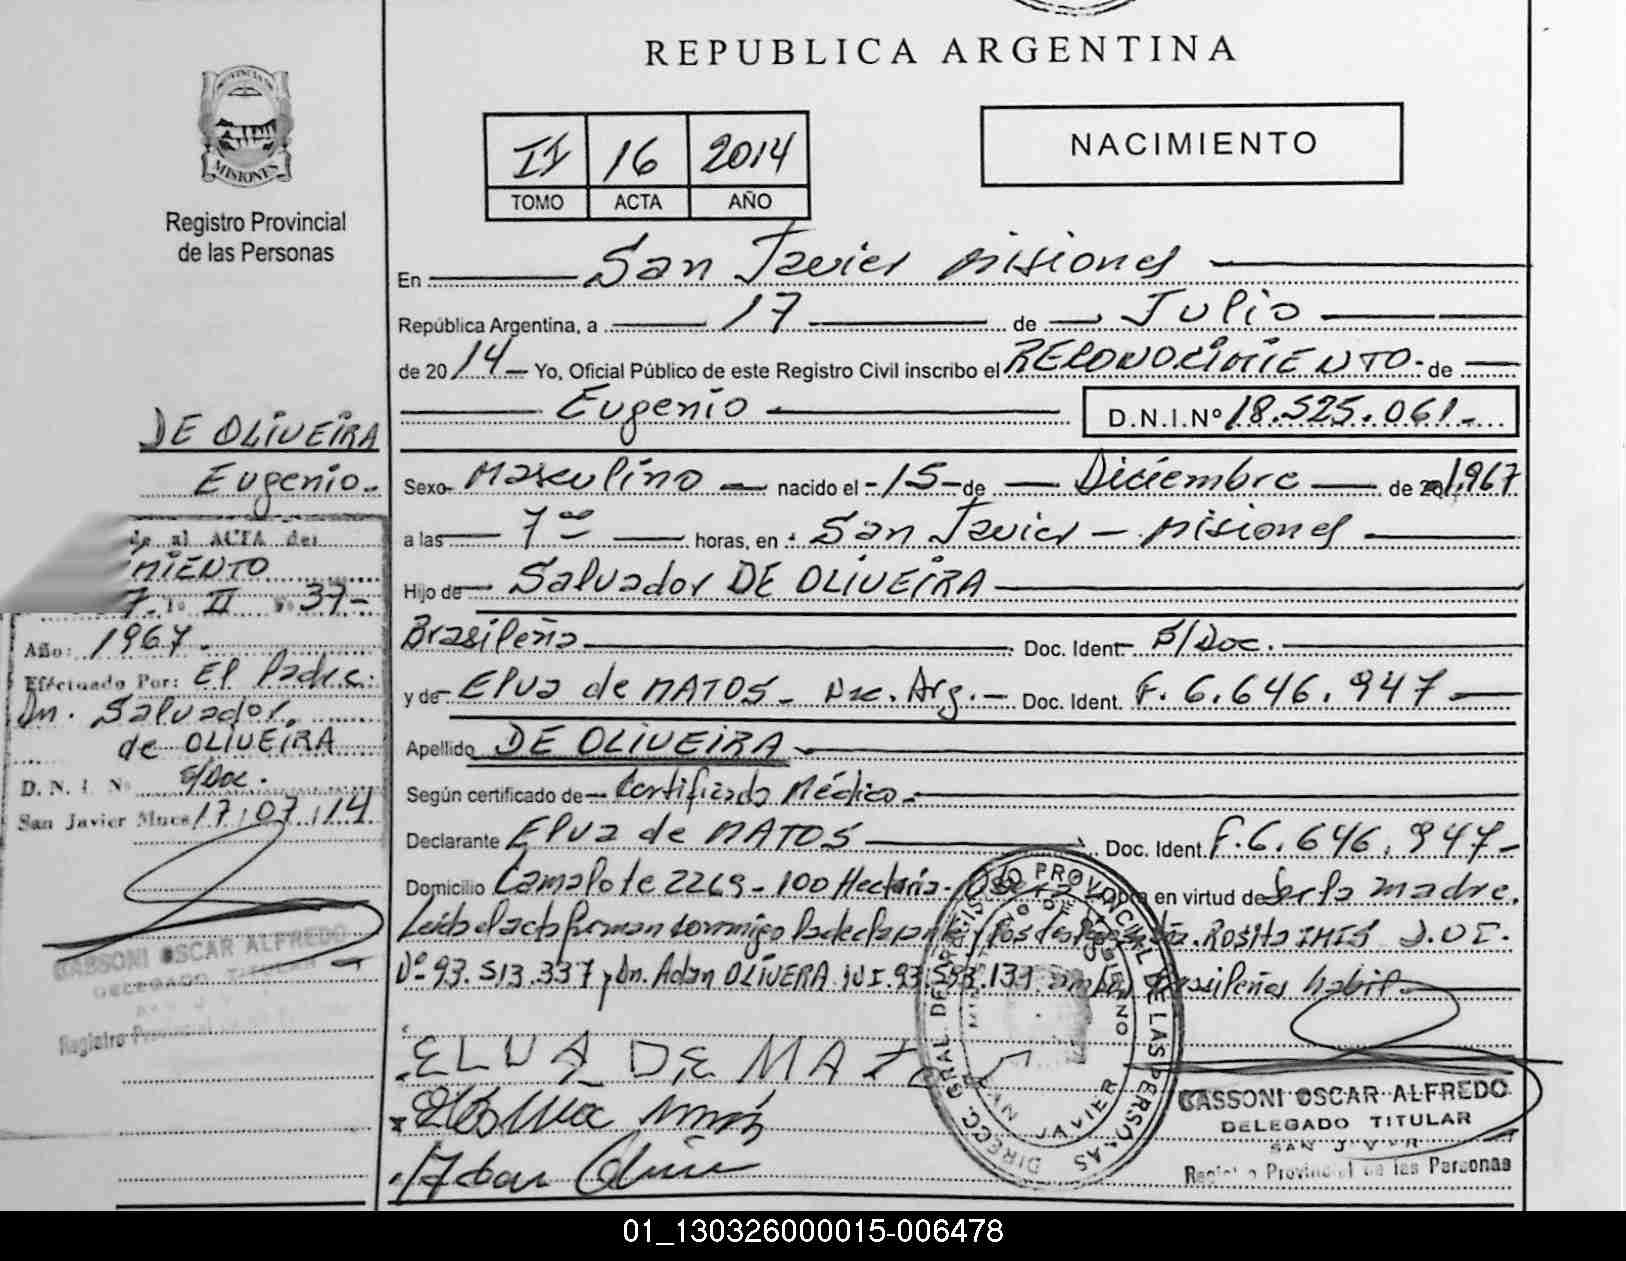 REPUBLICA ARGENTINA
PROVINCIA DE
MISIONES
Registro Provincial
de las Personas
II 16 2014
TOMO ACTA AÑO
NACIMIENTO
En San Javier Misiones
República Argentina, a 17 de Julio
de 2014- Yo, Oficial Público de este Registro Civil inscribo el RECONOCIMIENTO- de
Eugenio D.N.I.Nº 18.525.061-
Sexo- Masculino nacido el -15- de Diciembre de 1967
a las 7 horas, en San Javier - Misiones
Hijo de Salvador DE OLIVEIRA
Brasileña Doc. Ident S/Doc.
y de Elva de MATOS- Nac. Arg.- Doc. Ident. F. 6.646.947
Apellido DE OLIVEIRA
Según certificado de Certificado Médico-
Declarante Elva de MATOS Doc. Ident. F.6.646.947-
Domicilio Camalote 2269-100 Hectaria- en virtud de Ser la madre.
Leida el acta firman conmigo la declarante y los Rosita D.U.I.
Nº 93.513.337 y Dn. Adan OLIVERA habil
ELVA DE MA
Adan
DIRECC. GRAL. DEL REGISTRO PROVINCIAL DE LAS PERSONAS
SAN JAVIER
GASSONI OSCAR ALFREDO
DELEGADO TITULAR
SAN J V R
Registro Provincial de las Personas
DE OLIVEIRA
Eugenio-
al ACTA de
MIENTO
7- II 37-
Año: 1967-
Efectuado Por: El Padre:
Dn. Salvador
de OLIVEIRA
D. N. I. N S/Doc.
San Javier Mnes 17/07/14
GASSONI OSCAR ALFREDO
DELEGADO TITULAR
Registro Provincial
01_130326000015-006478